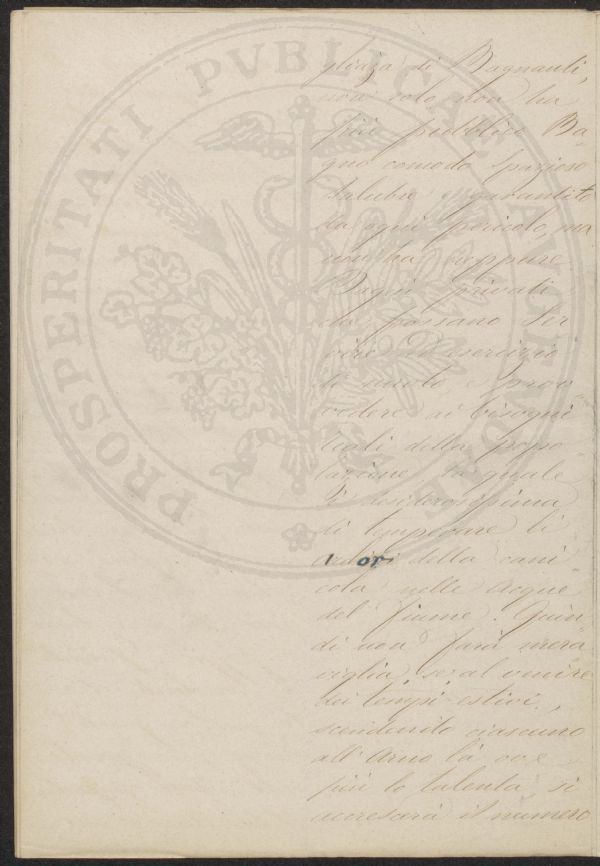 PROSPERITATI PVBLICAE AVGENDAE
gliaza di Bagnanti,
non solo non ha
più pubblico Ba
gno comodo spazioso
salubre e garantito
da ogni pericolo, ma
non ha neppure
Bagni privati
che possano Ser
vire ad esercizio
di nuoto e prov
vedere ai bisogni
reali della popo
lazione la quale
è desiderosissima
di temperare li
ardori della cani
cola nelle acque
del fiume. Quin
di non farà mera
viglia, se al venire
dei tempi estivi,
scendendo ciascuno
all'Arno là ove
più lo talenta, si
accrescerà il numero